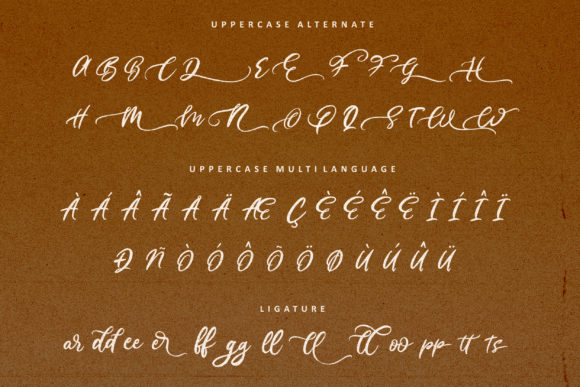 UPPERCASE ALTERNATE
A B B C D E E F F G H
H M M N O P Q S T W W
UPPERCASE MULTI LANGUAGE
À Á Â Ã Ä Ä Æ Ç È É Ê Ë Ì Í Î Ï
Ð Ñ Ò Ó Ô Õ Ö Ø Ù Ú Û Ü
LIGATURE
ar dd ee er ff gg ll ll tt oo pp tt ts